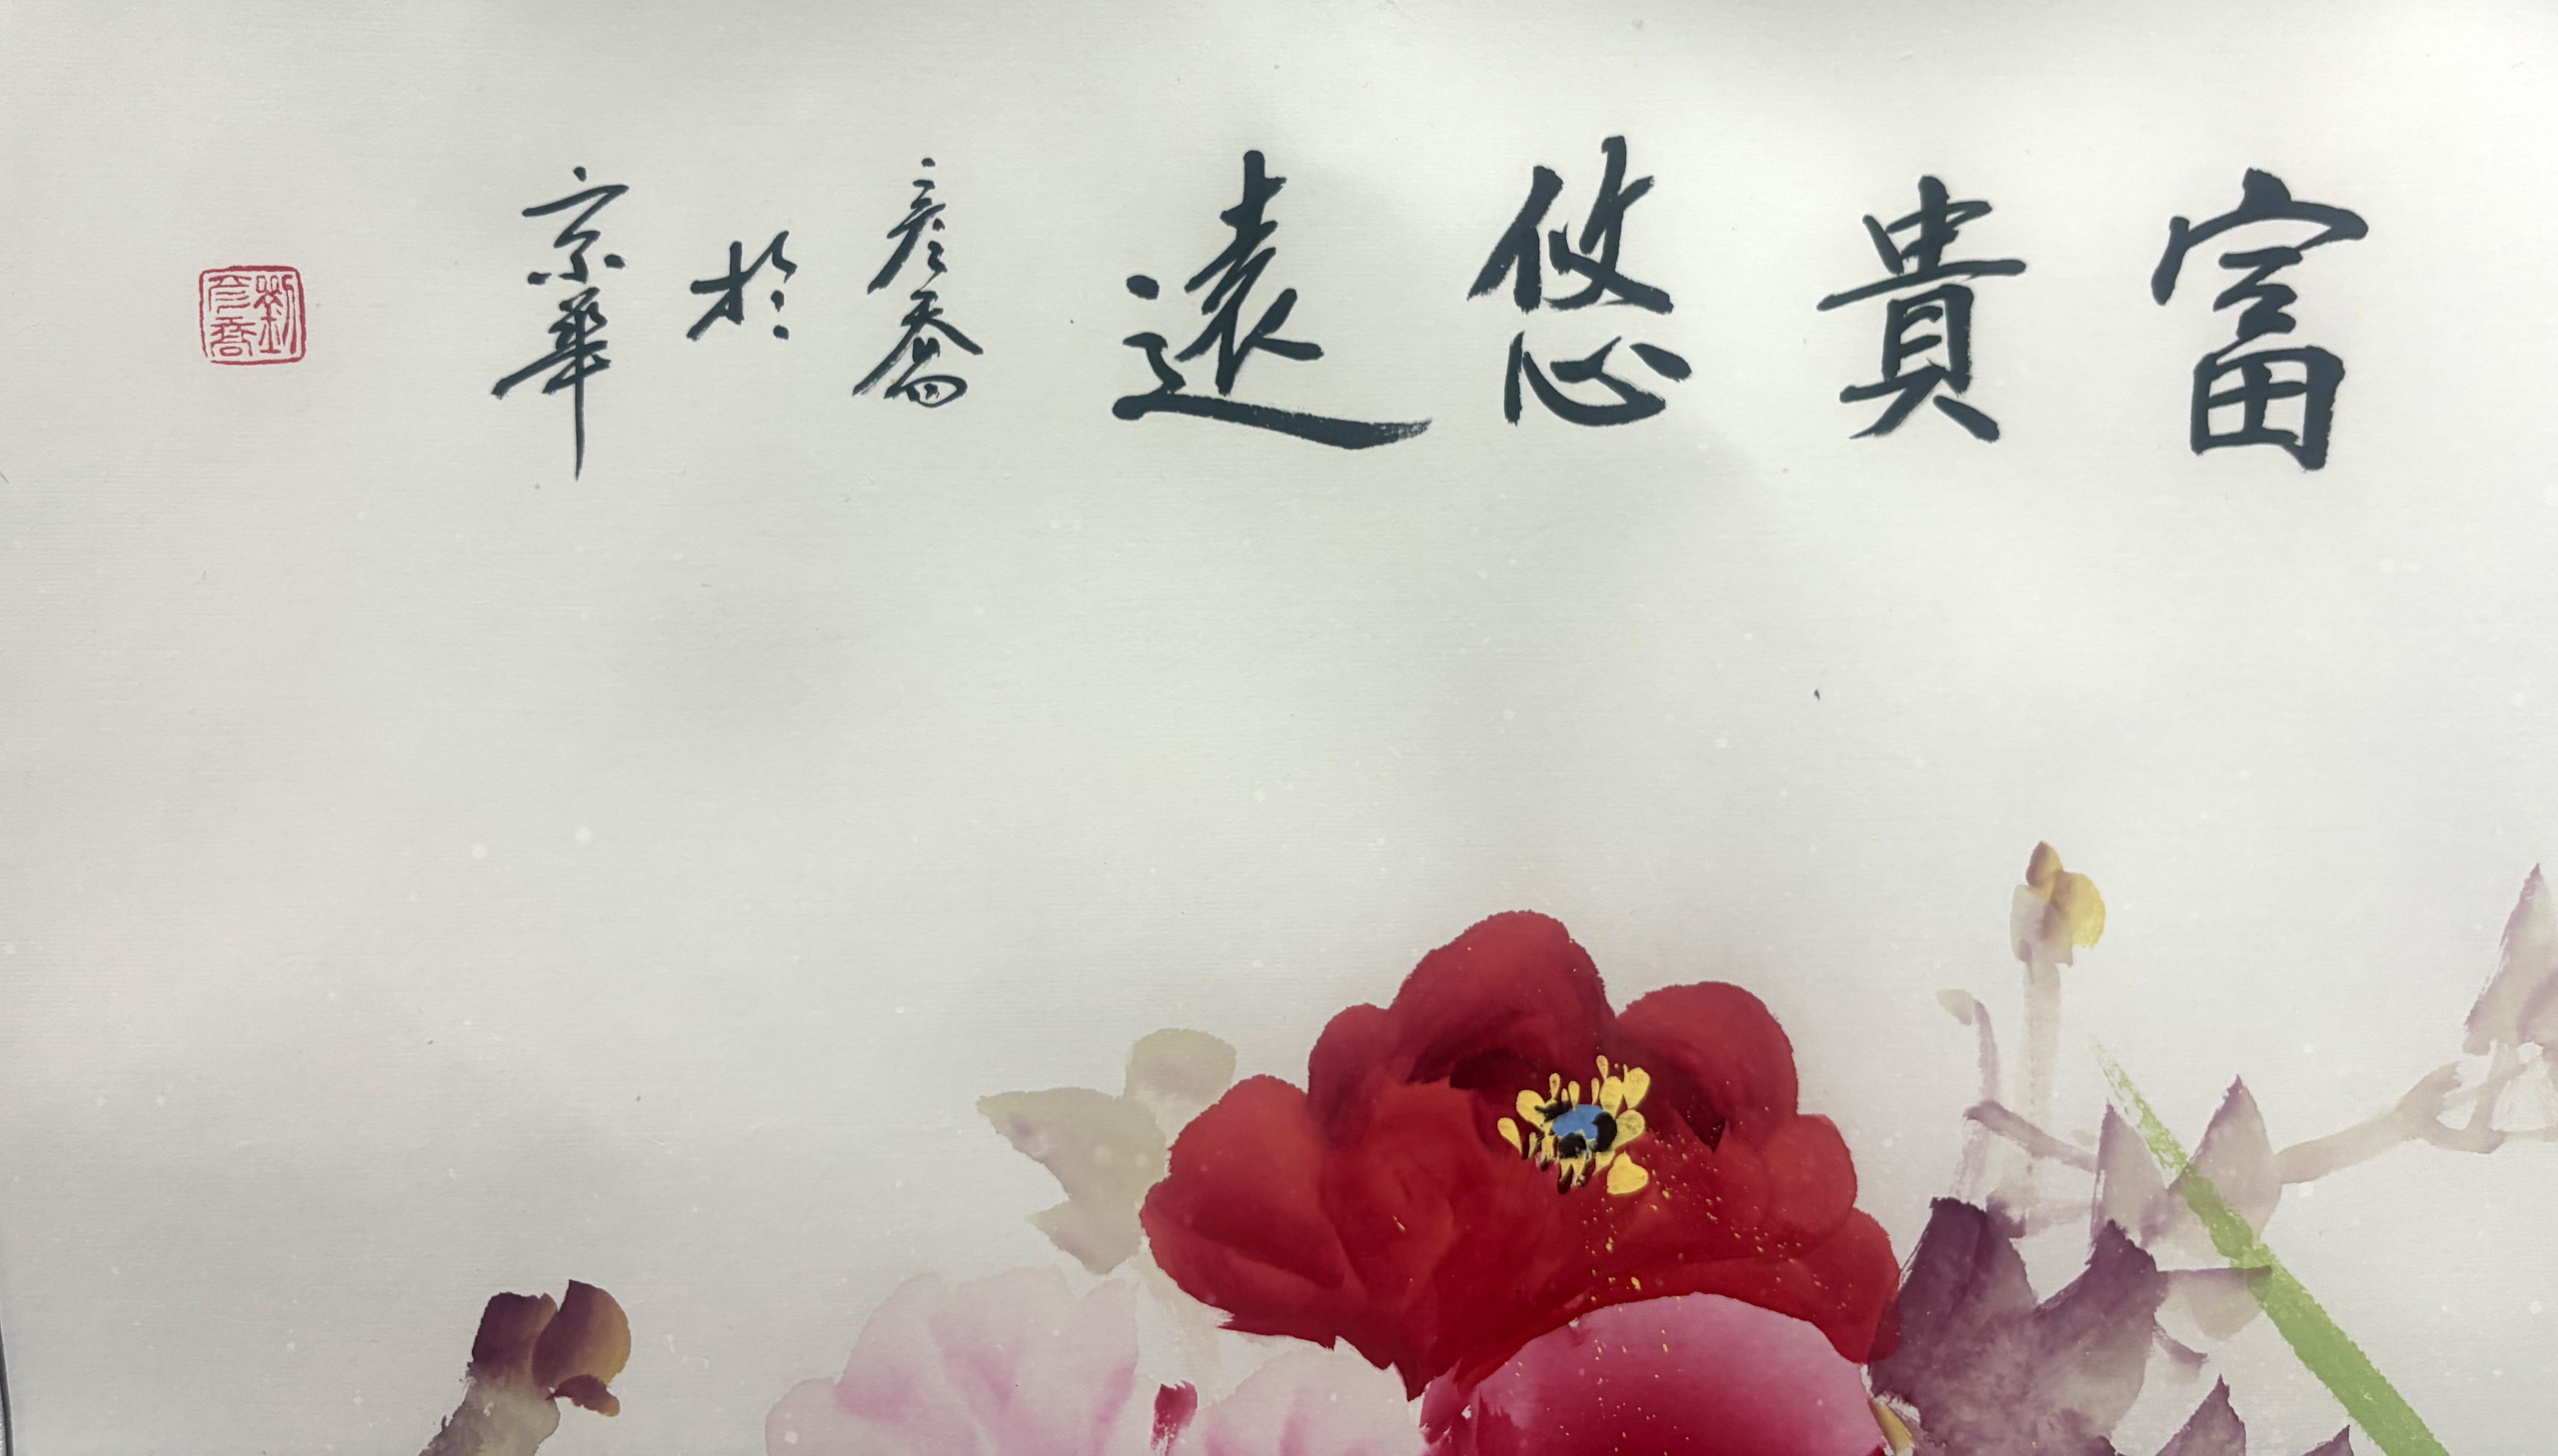 富貴悠遠
彦喬
於
京華
劉彦喬